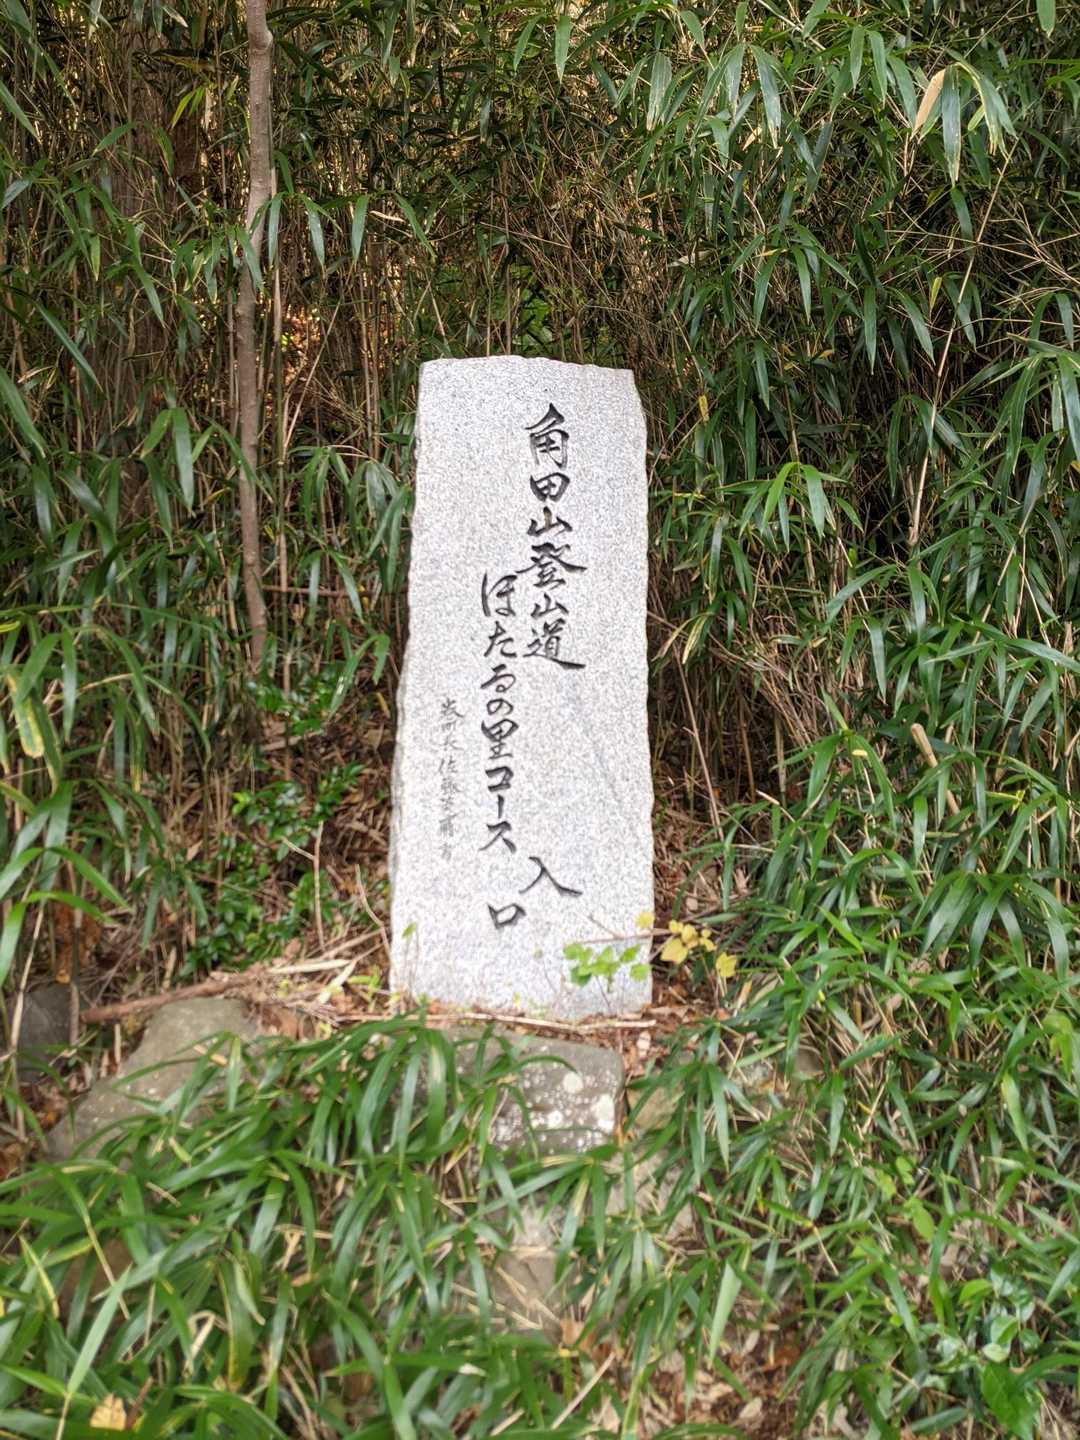 角田山登山道
ほたるの里コース
入口